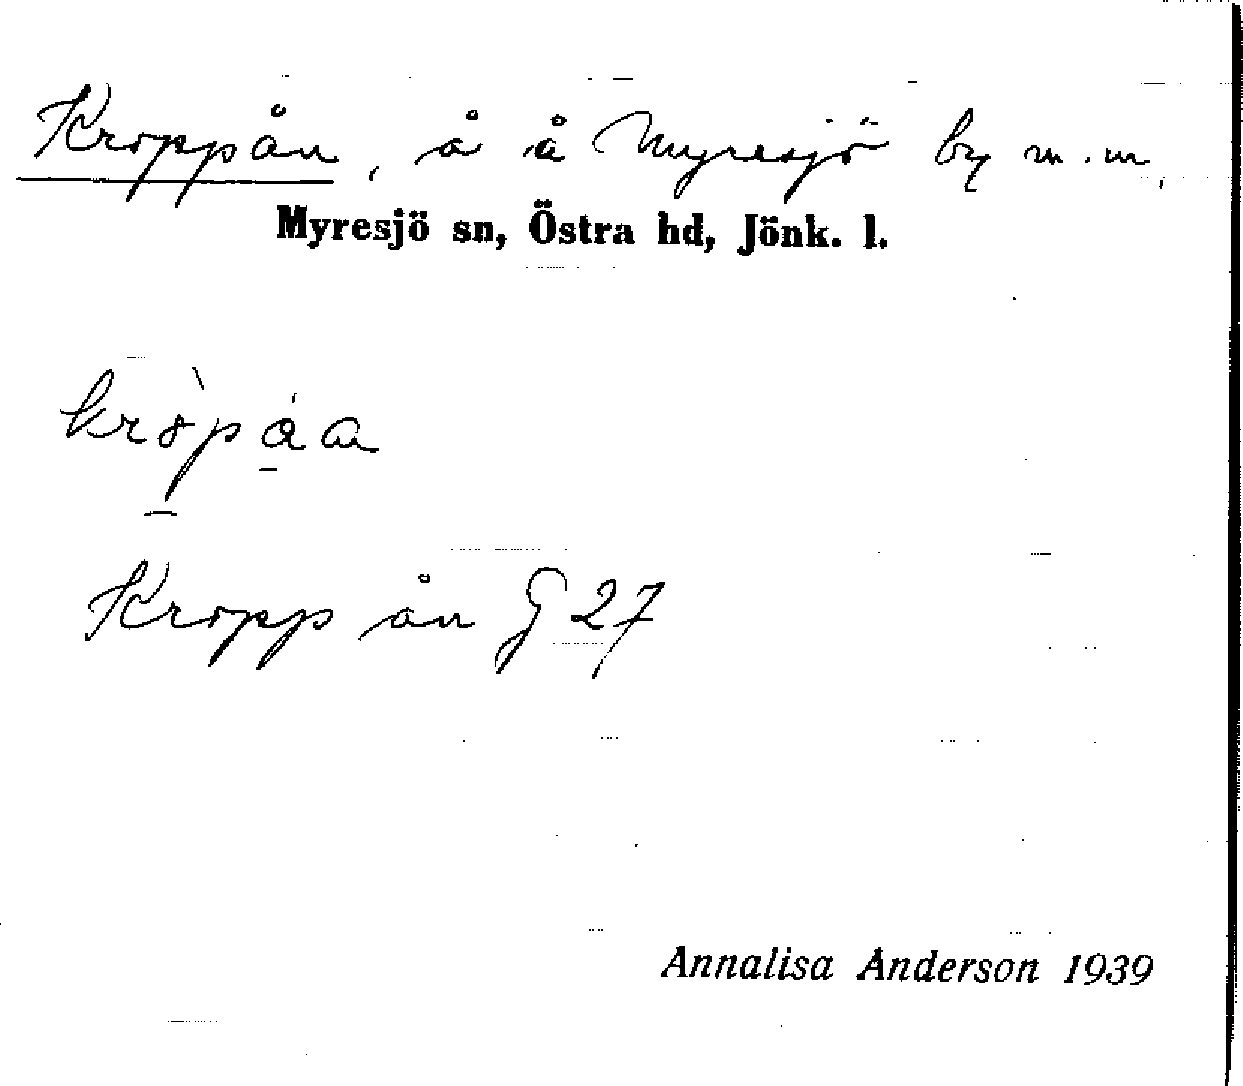 Kroppån, å å Myresjö by m.m.
Myresjö sn, Östra hd, Jönk. l.
Kropp ån G 27
Annalisa Anderson 1939